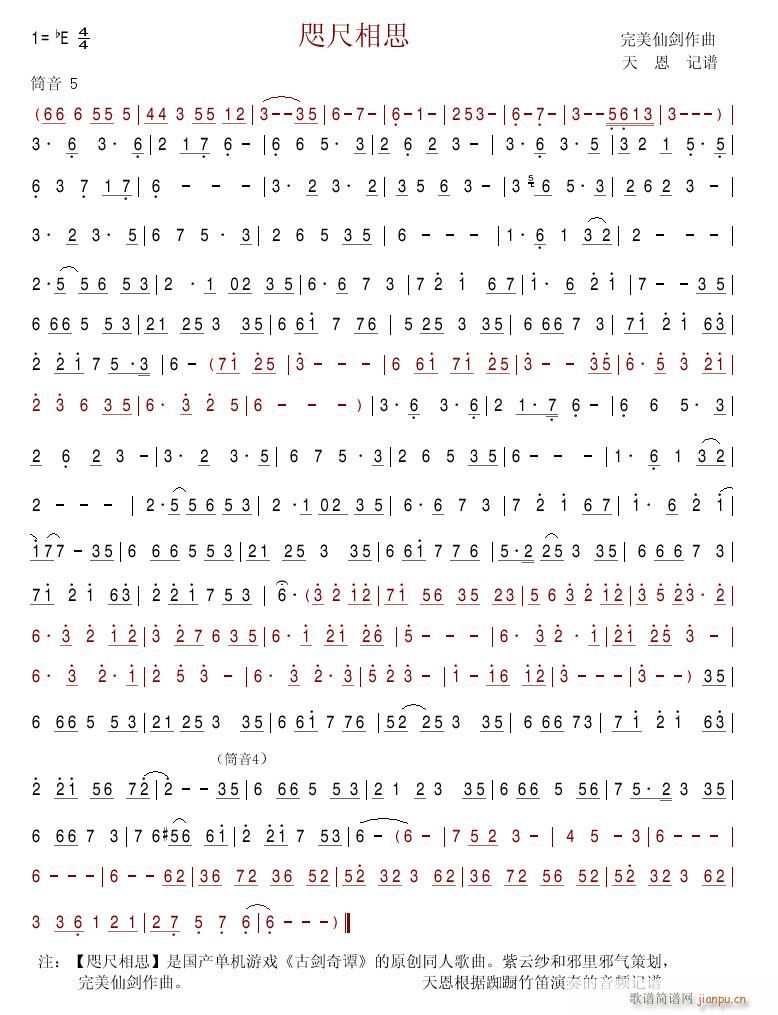 咫尺相思
1= ♭E 4/4
完美仙剑作曲
天 恩 记谱
筒音 5
(66 6 55 5|44 3 55 12|3--35|6-7-|6-1-|253-|6-7-|3--5613|3---)|
3· 6 3· 6|2 1 7 6-|6 6 5· 3|2 6 2 3 -|3· 6 3· 5|3 2 1 5·5|
6 3 7 17|6 - - -|3· 2 3· 2|3 5 6 3 -|3 5 6 5· 3|2 6 2 3 -|
3· 2 3· 5|6 7 5· 3|2 6 5 35|6 - - -|1· 6 1 32|2 - - -|
2·5 56 53|2 ·1 02 35|6·6 7 3|72 1 67|1· 6 21|7--35|
6 66 5 53|21 253 35|6 61 7 76|5 25 3 35|6 66 7 3|71 2 1 63|
2 21 7 5·3|6-(71 25|3---|6 61 71 25|3--35|6·5 3 21|
2 3 6 35|6· 3 2 5|6 - - -)|3·6 3·6|2 1·7 6-|6 6 5· 3|
2 6 2 3 -|3· 2 3·5|6 7 5·3|2 6 5 35|6 - - -|1·6 1 32|
2 - - -|2·5 56 53|2·1 02 35|6·6 7 3|72 1 67|1· 6 21|
177-35|6 66 5 53|21 25 3 35|6 61 7 76|5·2 25 3 35|6 66 7 3|
71 2 1 63|2 21 7 53|6·(3 2 12|71 56 35 23|5 6 3 2 12|3 5 23·2|
6·3 2 12|3 27 6 35|6·1 21 26|5---|6· 3 2·1|21 25 3 -|
6· 3 2·1|2 5 3 -|6· 3 2·3|5 2 3 -|1-16 12|3---|3--)35|
6 66 5 53|21 25 3 35|6 61 7 76|52 25 3 35|6 66 73|71 21 63|
(筒音4)
2 21 56 72|2--35|6 66 5 53|2 1 2 3 35|6 66 5 56|7 5·2 3 35|
6 66 7 3|7 6#56 61|2 21 7 53|6-(6-|7 52 3-|4 5-3|6---|
6---|6--62|36 72 36 52|36 72 56 52|32 52 32 52|32 3 62|
3 36 1 21|27 5 7 6|6---)‖
注：【咫尺相思】是国产单机游戏《古剑奇谭》的原创同人歌曲。紫云纱和邪里邪气策划，
完美仙剑作曲。 天恩根据踟蹰竹笛演奏的音频记谱
歌谱简谱网 jianpu.cn